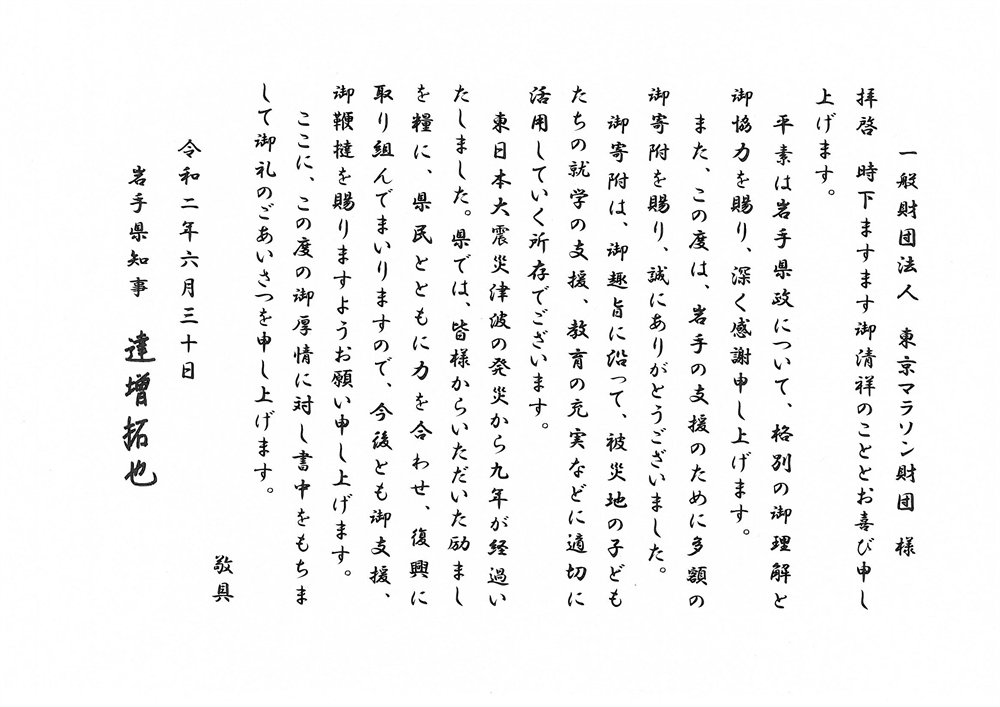 一般財団法人　東京マラソン財団　様
拝啓　時下ますます御清祥のこととお喜び申し
上げます。
　平素は岩手県政について、格別の御理解と
御協力を賜り、深く感謝申し上げます。
　また、この度は、岩手の支援のために多額の
御寄附を賜り、誠にありがとうございました。
　御寄附は、御趣旨に沿って、被災地の子ども
たちの就学の支援、教育の充実などに適切に
活用していく所存でございます。
　東日本大震災津波の発災から九年が経過い
たしました。県では、皆様からいただいた励まし
を糧に、県民とともに力を合わせ、復興に
取り組んでまいりますので、今後とも御支援、
御鞭撻を賜りますようお願い申し上げます。
　ここに、この度の御厚情に対し書中をもちま
して御礼のごあいさつを申し上げます。
敬具
令和二年六月三十日
岩手県知事　達増拓也